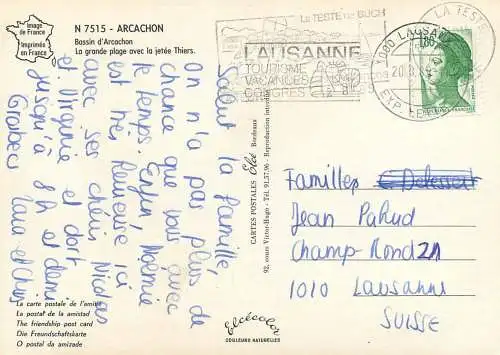 Image
de France
Imprimée
en France
N 7515 - ARCACHON
Bassin d'Arcachon
La grande plage avec la jetée Thiers.
Salut la famille,
On n'a pas plus de
chance que vous avec
le temps. Enfin, Noémie
est très heureuse ici
avec ses chéris Nicolas
et Virginie et dort
jusqu'à 8h et demi
Grosbecs
La carte postale de l'amitié
La postal de la amistad
The friendship post card
Die Freundschaftskarte
O postal da amizade
CARTES POSTALES Elcé Bordeaux
92, cours Victor-Hugo - Tél. 91.37.96 - Reproduction interdite
elcécolor
COULEURS NATURELLES
LA TESTE DE BUCH
LAUSANNE
TOURISME
VACANCES
CONGRES
1000 LAUSANNE
20.8
EXP LE
LA TESTE
1,60
Familles
Jean Pahud
Champ-Rond 21
1010 Lausanne
SUISSE